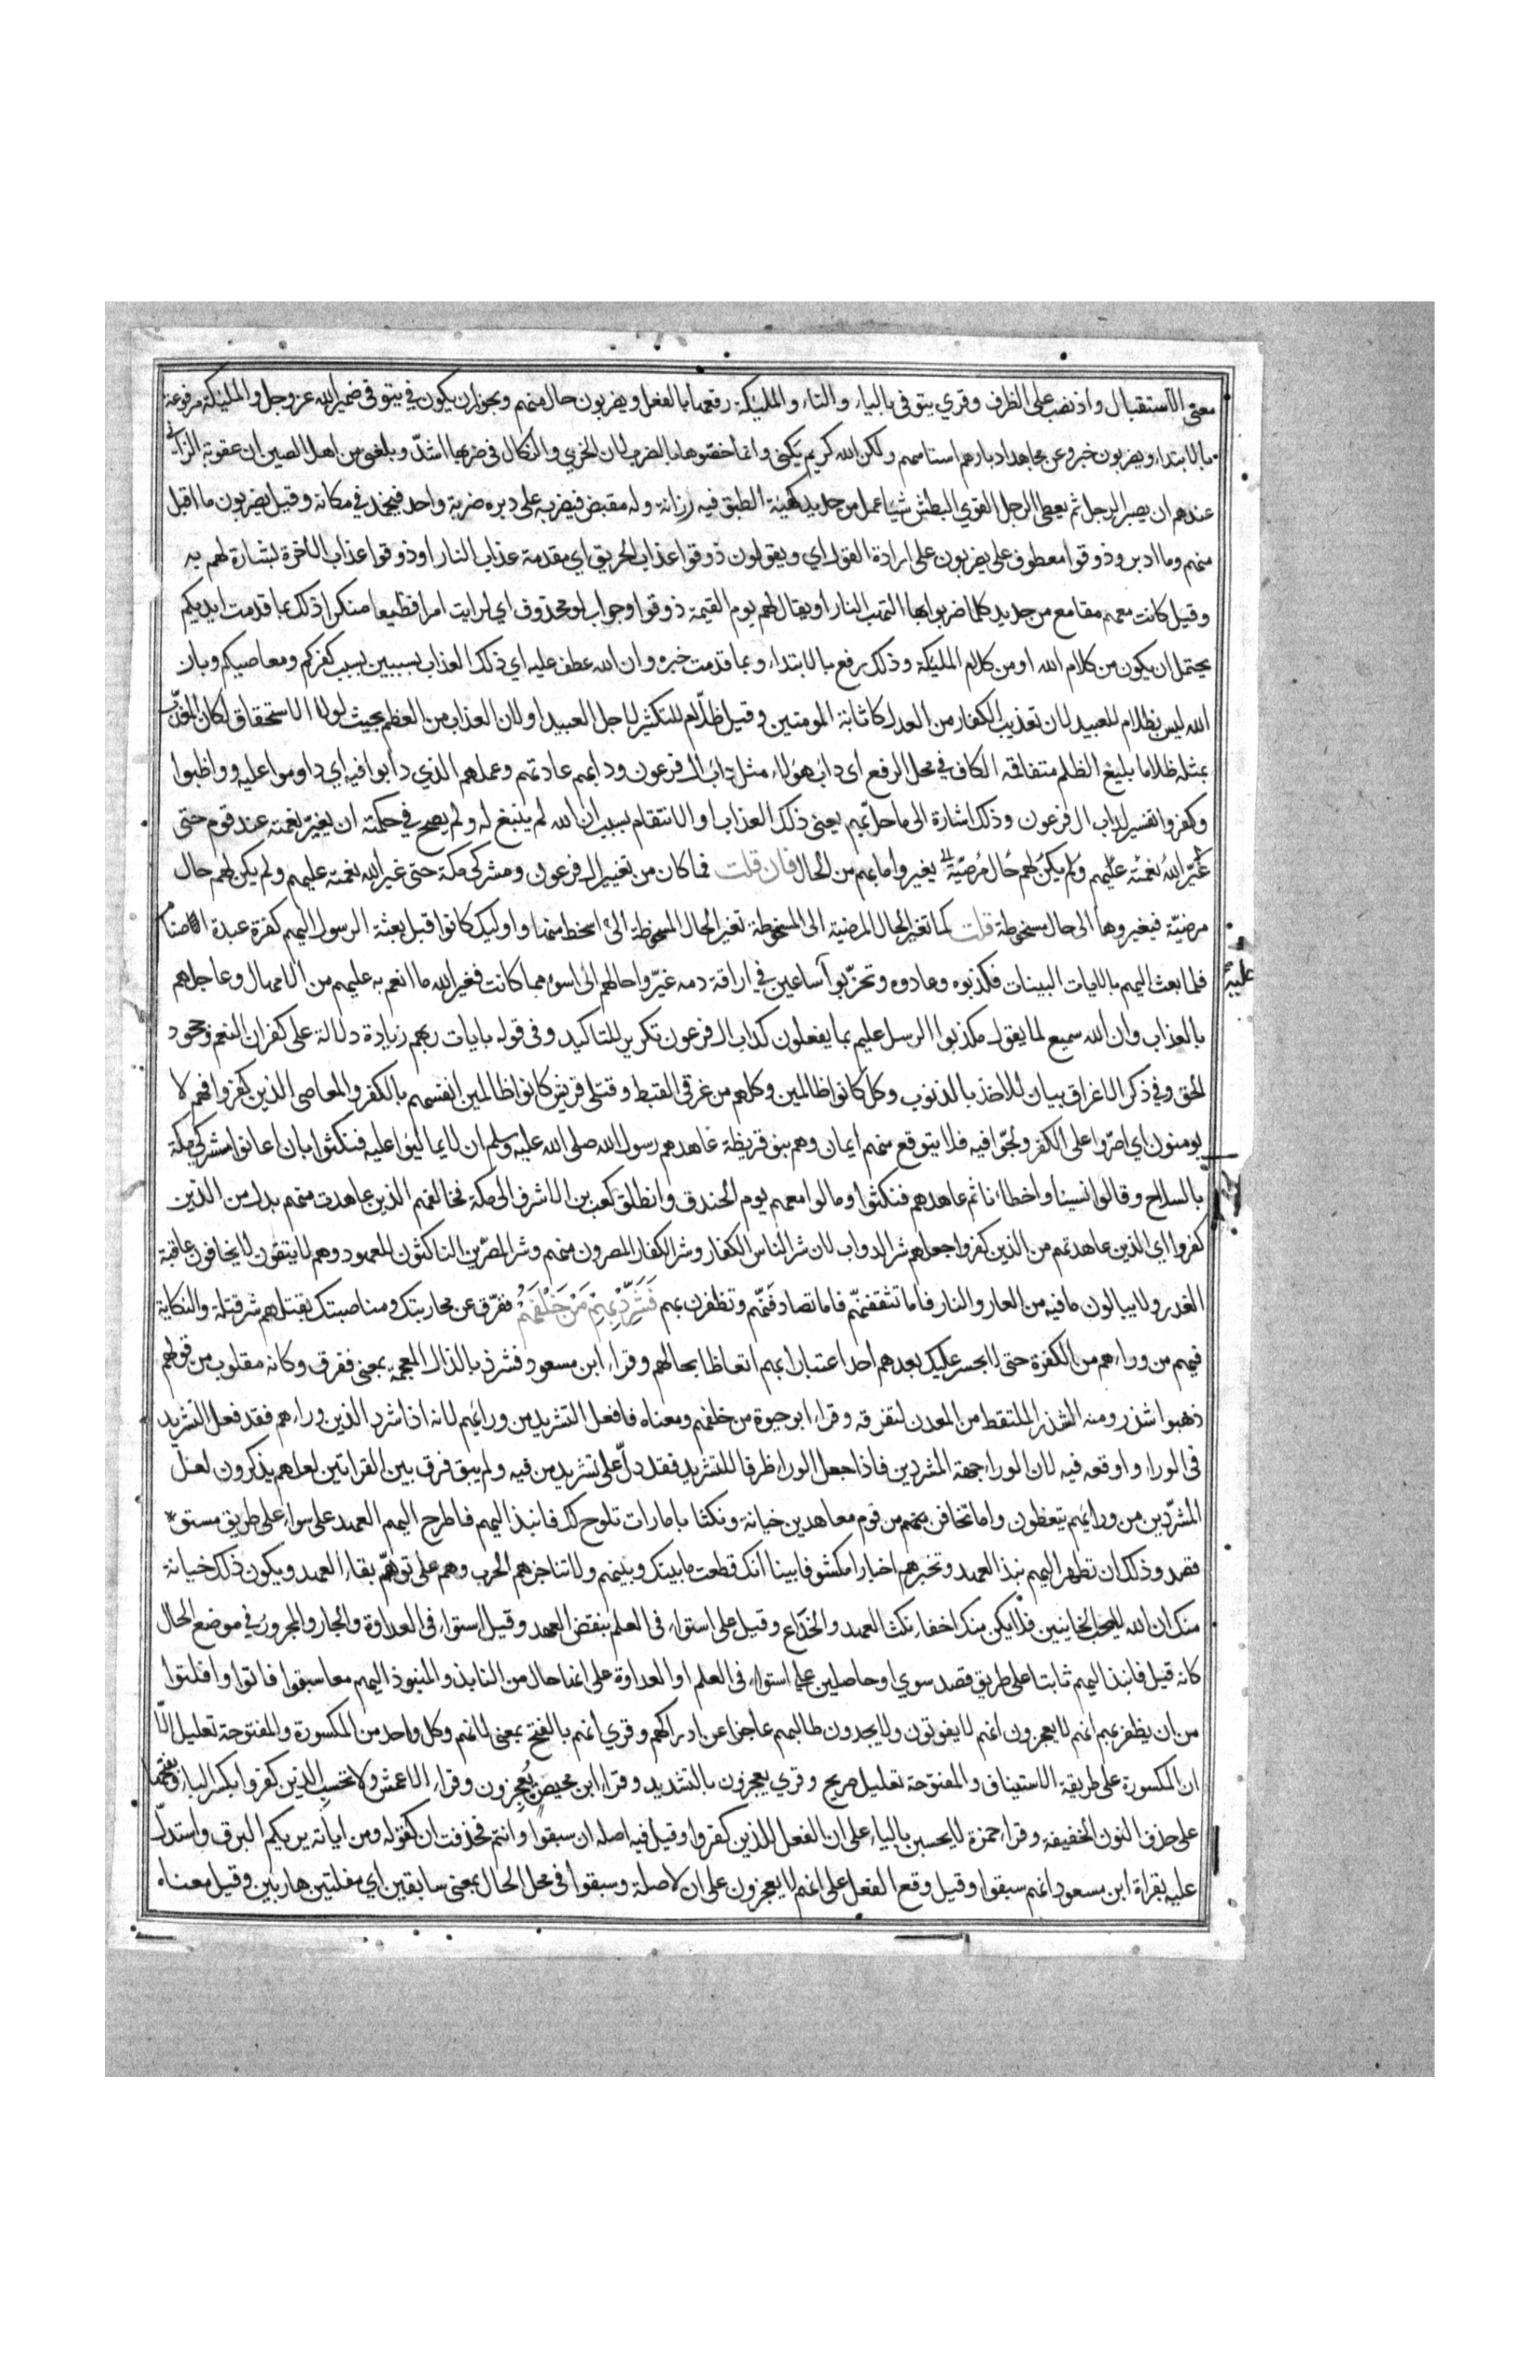 معنى الاستقبال واذ نصب على الظرف وقري يتوفى بالياء والتاء والمليكة رفعها بالفعل ويضربون حال منهم ويجوز ان يكون في يتوفى ضمير الله عز وجل والمليكة مرفوعة
بالابتداء ويضربون خبر وعن مجاهد ادبارهم استاههم ولكن الله كريم يكني وانما خصوها بالضرب لان الخزي والنكال في ضربها اشد وبلغني من اهل الصين ان عقوبة الزاني
عندهم ان يصبر الرجل ثم يعطى الرجل القوي البطش شيا عمل من حديد كهيئة الطبق فيه رزانة وله مقبض فيضربه على دبره ضربة واحد فيجمد في مكانه وقيل يضربون ما اقبل
منهم وما ادبر وذوقوا معطوف على يضربون على ارادة القول اي ويقولون ذوقوا عذاب الحريق اي مقدمة عذاب النار او ذوقوا عذاب الاخرة بشارة لهم به
وقيل كانت معهم مقامع من حديد كلما ضربوا بها التهب النار او يقال لهم يوم القيمة ذوقوا وجواب لو محذوف اي لرايت امرا فظيعا منكرا ذلك بما قدمت ايديكم
يحتمل ان يكون من كلام الله او من كلام المليكة وذلك رفع بالابتداء وبما قدمت خبره وان الله عطف عليه اي ذلك العذاب بسببين بسبب كفركم ومعاصيكم وبان
الله ليس بظلام للعبيد لان تعذيب الكفار من العدل كاثابة المومنين وقيل ظلام للتكثير لاجل العبيد او لان العذاب من العظم بحيث لولا الاستحقاق لكان المعذب
بمثله ظلاما بليغ الظلم متفاقمه الكاف في محل الرفع اى داب هولاء مثل داب ال فرعون ودابهم عادتهم وعملهم الذي دابوا فيه اي داوموا عليه وواظبوا
وكفروا تفسير لداب ال فرعون وذلك اشارة الى ما حل بهم يعنى ذلك العذاب او الانتقام بسبب ان الله لم ينبغ له ولم يصح في حكمته ان يغير نعمته عند قوم حتى
غير الله نعمته عليهم ولم يكن لهم حال مرضية يغيروا ما بهم من الحال فان قلت فما كان من تغيير ال فرعون ومشركى مكة حتى غير الله نعمته عليهم ولم يكن لهم حال
مرضية فيغيروها الى حال مسخوطة قلت كما تغير الحال المرضية الى المسخوطة تغير الحال المسخوطة الى اسخط منها واوليك كانوا قبل بعثة الرسول اليهم كفرة عبدة الاصنام
فلما بعث اليهم بالايات البينات فكذبوه وعادوه وتحزبوا ساعين في اراقة دمه غيروا حالهم الى اسوء مما كانت فغير الله ما انعم به عليهم من الامهال وعاجلهم
بالعذاب وان الله سميع لما يقول مكذبوا الرسل عليم بما يفعلون كداب ال فرعون تكرير للتاكيد وفى قوله بايات ربهم زيادة دلالة على كفران النعم وجحود
الحق وفي ذكر الاغراق بيان للاخذ بالذنوب وكل كانوا ظالمين وكلهم من غرقى القبط وقتلى قريش كانوا ظالمين انفسهم بالكفر والمعاصى الذين كفروا فهم لا
يومنون اي اصروا على الكفر ولجوا فيه فلا يتوقع منهم ايمان وهم بنو قريظة عاهدهم رسول الله صلى الله عليه وسلم ان لا يماليوا عليه فنكثوا بان اعانوا مشركي مكة
بالسلاح وقالوا نسينا واخطانا ثم عاهدهم فنكثوا ومالوا معهم يوم الخندق وانطلق كعب بن الاشرف الى مكة فحالفهم الذين عاهدت منهم بدل من الذين
كفروا اي الذين عاهدتهم من الذين كفروا جعلهم شر الدواب لان شر الناس الكفار وشر الكفار المصرون منهم وشر المصرين الناكثون للعهود وهم لا يتقون لا يخافون عاقبة
الغدر ولا يبالون ما فيه من العار والنار فاما تثقفنهم فاما تصادفنهم وتظفرن بهم فشرد بهم من خلفهم ففرق عن محاربتك ومناصبتك بقتلهم شر قتلة والنكاية
فيهم من وراءهم من الكفرة حتى لا يجسر عليك بعدهم احد اعتبارا بهم اتعاظا بحالهم وقراء ابن مسعود فشرذ بالذال المعجمة بمعنى ففرق وكانه مقلوب من قولهم
ذهبوا شذر ومنه الشذر الملتقط من المعدن لتفرقه وقراء ابو حيوة من خلفهم ومعناه فافعل التشريد من ورائهم لانه اذا شرد الذين وراءهم فقد فعل التشريد
فى الوراء واوقعه فيه لان الوراء جهة المشردين فاذا جعل الوراء ظرفا للتشريد فقد دل على تشريد من فيه ولم يبق فرق بين القراتين لعلهم يذكرون لعل
المشردين من ورائهم يتعظون واما تخافن منهم من قوم معاهدين خيانة ونكثا بامارات تلوح لك فانبذ اليهم فاطرح اليهم العهد على سواء على طريق مستو
قصد وذلك ان تظهر اليهم نبذ العهد وتخبرهم اخبارا مكشوفا بينا انك قطعت ما بينك وبينهم ولا تناجزهم الحرب وهم على توهم بقاء العهد ويكون ذلك خيانة
منك ان الله لا يحب الخاينين فلا يكن منك اخفاء نكث العهد والخداع وقيل على استواء فى العلم بنقض العهد وقيل استواء فى العداوة والجار والمجرور في موضع الحال
كانه قيل فانبذ اليهم ثابتا على طريق قصد سوي او حاصلين على استواء فى العلم او العداوة على انها حال من النابذ والمنبوذ اليهم معا سبقوا فاتوا وافلتوا
من ان يظفر بهم انهم لا يعجزون انهم لا يفوتون ولا يجدون طالبهم عاجزا عن ادراكهم وقري انهم بالفتح بمعنى لانهم وكل واحد من المكسورة والمفتوحة تعليل الا
ان المكسورة على طريقة الاستيناف والمفتوحة تعليل صريح وقري يعجزون بالتشديد وقراء ابن محيصن يعجزون وقراء الاعمش ولا تحسب الذين كفروا بكسر الباء وفتحها
على حذف النون الخفيفة وقراء حمزة لا يحسبن بالياء على ان الفعل للذين كفروا وقيل فيه اصله ان سبقوا وانتم فحذفت ان كقوله ومن اياته يريكم البرق واستدل
عليه بقراة ابن مسعود انهم سبقوا وقيل وقع الفعل على انهم لا يعجزون على ان لا صلة وسبقوا فى محل الحال بمعنى سابقين اي مفلتين هاربين وقيل معناه